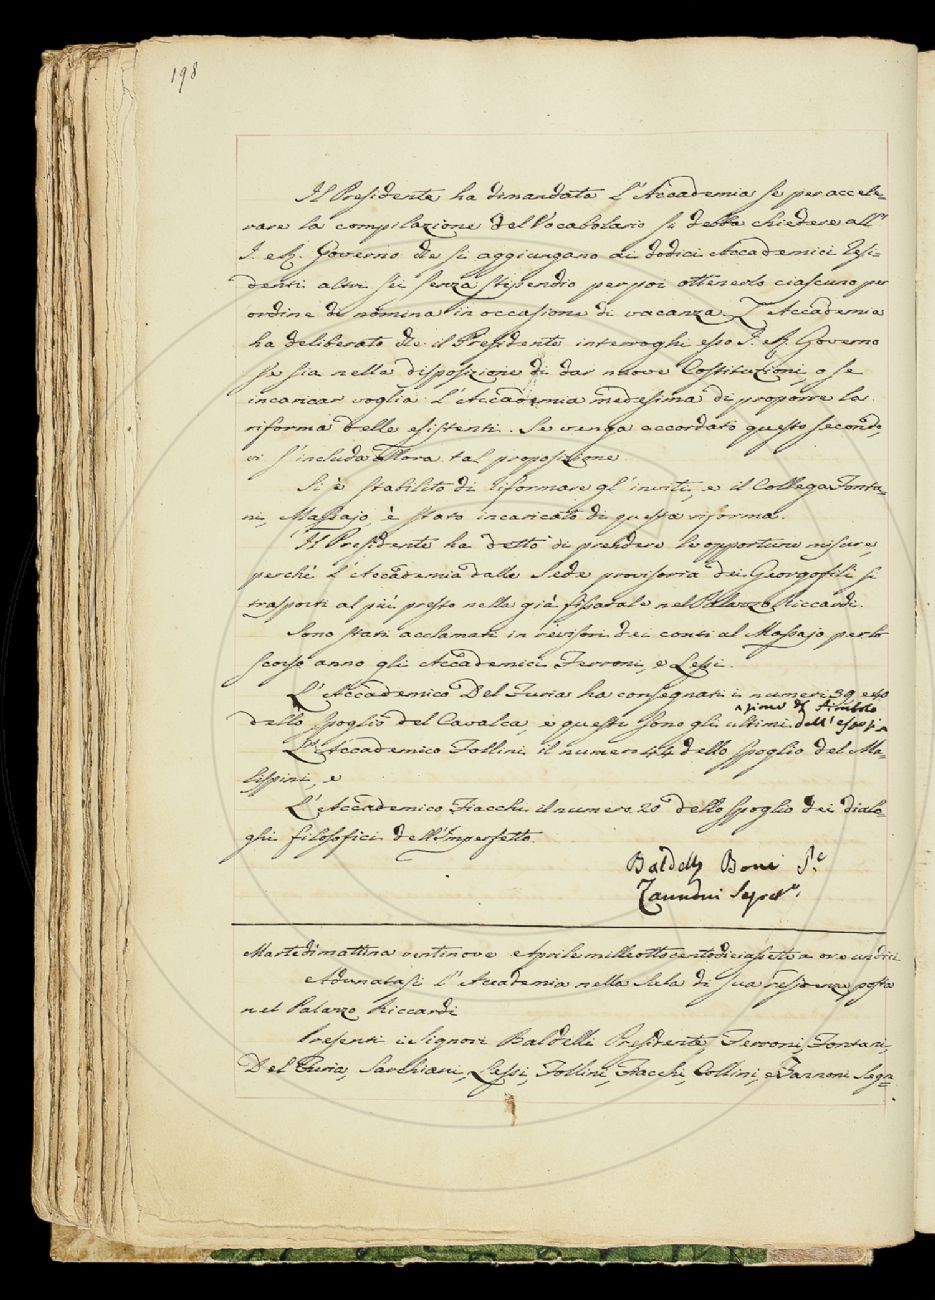 198
Il Presidente ha dimandato l'Accademia se per accele=
rare la compilazione del Vocabolario si debba chiedere all'
I. e R. Governo che si aggiungano ai dodici Accademici Resi=
denti altri sei senza stipendio per poi ottenerlo ciascuno per
ordine di nomina in occasione di vacanza. L'Accademia
ha deliberato che il Presidente interroghi esso I. e R. Governo
se sia nella disposizione di dar nuove Costituzioni, o se
incaricar voglia l'Accademia medesima di proporre la
riforma delle esistenti. Se venga accordato questo secondo,
vi s'includa allora tal proposizione.
Si è stabilito di riformare gl'inviti, e il Collega Fonta=
ni, Massajo, è stato incaricato di questa riforma.
Il Presidente ha detto di prendere le opportune misure,
perchè l'Accademia dalla Sede provisoria dei Georgofili si
trasporti al più presto nella già fissatale nel Palazzo Riccardi.
Sono stati acclamati in revisori dei conti al Massajo per lo
scorso anno gli Accademici Ferroni, e Lessi.
L'Accademico Del Furia ha consegnati i numeri 39 e 40
dello spoglio del Cavalca, e questi sono gli ultimi dell'esposi=
zione del Simbolo
L'Accademico Follini il numero 44 dello spoglio del Ma=
lispini, e
L'Accademico Fiacchi il numero 20 dello spoglio dei dialo=
ghi filosofici dell'Imperfetto.
Baldelli Boni P.e
Zannoni Segret.o
Martedì mattina ventinove Aprile mille ottocentodiciassette a ore undici
Adunatasi l'Accademia nella Sala di sua residenza posta
nel Palazzo Riccardi
Presenti i Signori Baldelli Presidente, Ferroni, Fontani,
Del Furia, Sarchiani, Lessi, Follini, Fiacchi, Collini, e Zannoni Segr=